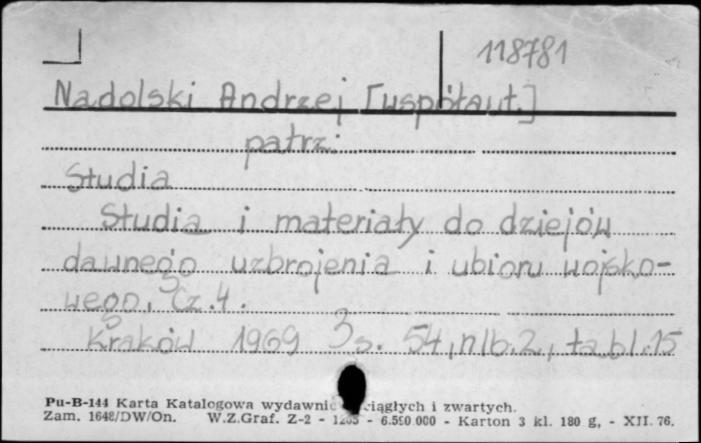 118781
Nadolski Andrzej [współaut.]
patrz:
Studia
Studia i materiały do dziejów
dawnego uzbrojenia i ubioru wojsko-
wego. Cz. 4.
Kraków 1969 s. 54, nlb. 2, tabl. 15
Pu-B-144 Karta Katalogowa wydawnic ciągłych i zwartych.
Zam. 1648/DW/On. W.Z.Graf. Z-2 - - 6.550 000 - Karton 3 kl. 180 g, - XII. 76.